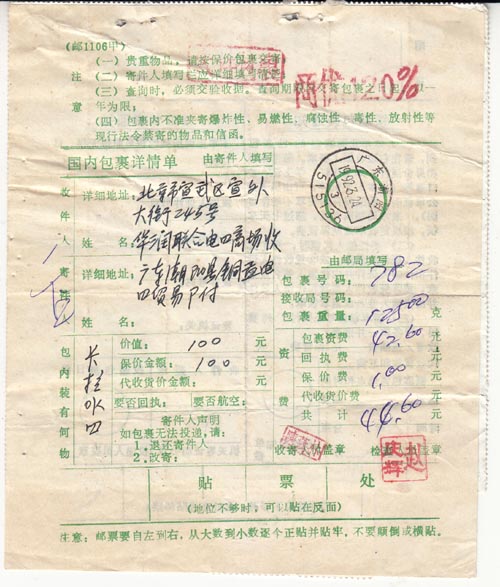 (邮1106甲)
(一) 贵重物品,请按保价包裹交寄
注 (二) 寄件人填写栏应详细填写清楚
(三) 查询时,必须交验收据。查询期限自交寄包裹之日起,以一
意 年为限;
(四) 包裹内不准夹寄爆炸性、易燃性、腐蚀性、毒性、放射性等
现行法令禁寄的物品和信函。
120%
国内包裹详情单 由寄件人填写
广东潮阳
92.6.24
515126
收件人 详细地址: 北京市宣武区宣外
大街245号
姓名 华润联合电口商场收
寄件人 详细地址: 广东潮阳县铜盂电
口贸易P付
姓名:
由邮局填写
包裹号码: 782
接收局号码:
包裹重量: 12500 克
包内装有何物
价值: 100 元
保价金额: 100 元
代收货价金额: 元
要否回执: 要否航空:
寄件人声明
如包裹无法投递,请:
1.退还寄件人
2.改寄:
资费
包裹资费 42.60 元
回执费 元
保价费 1.00 元
代收货价费 元
共计 44.60 元
收寄人员盖章 检查人员盖章
赵庆辉
贴 票 处
(地位不够时,可以贴在反面)
注意:邮票要自左到右,从大数到小数逐个正贴并贴牢,不要颠倒或横贴。